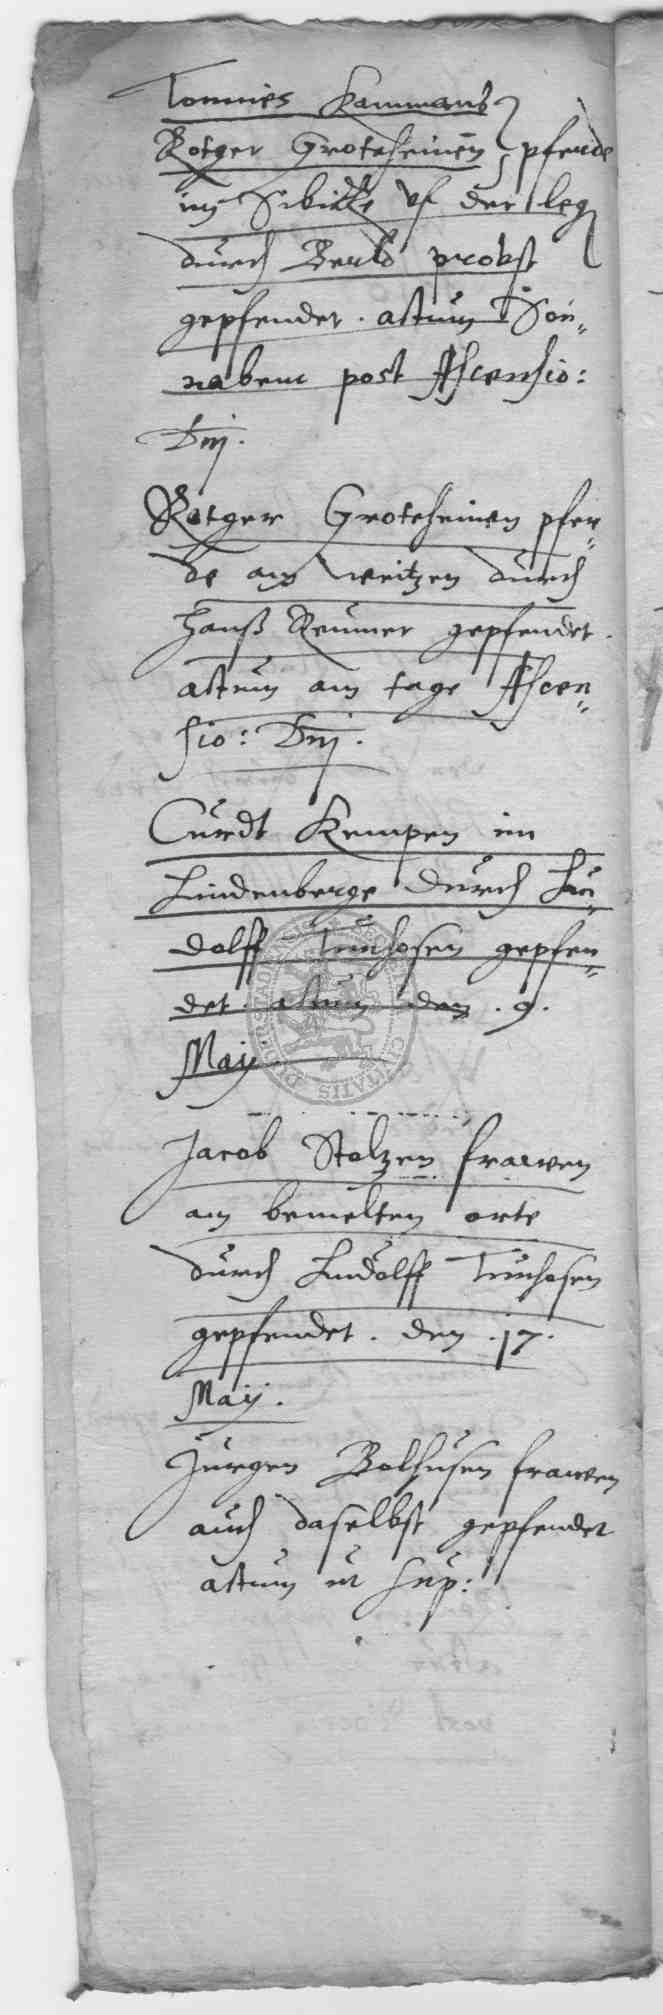 Tonnies Kammans
Rotger Grotheinen pferde
im Sibicke uf der leg
durch Berld probst
gepfendet. actum Son„
nabent post Ascensio:
Dnj.
Rotger Grotheinen pfer„
de am weitzen durch
Hanß Reumer gepfendet.
actum am tage Ascen„
sio: Dnj.
Curdt Kempen im
Lindenberge durch Lu„
dolff Tunhosen gepfen„
det. actum den .9.
Maij.
Jacob Stolzen frawen
am bemelten orte
durch Ludolff Tunhosen
gepfendet. den .17.
Maij.
Jurgen Bolhusen frawen
auch daselbst gepfendet
actum ut sup:
CIVITATIS